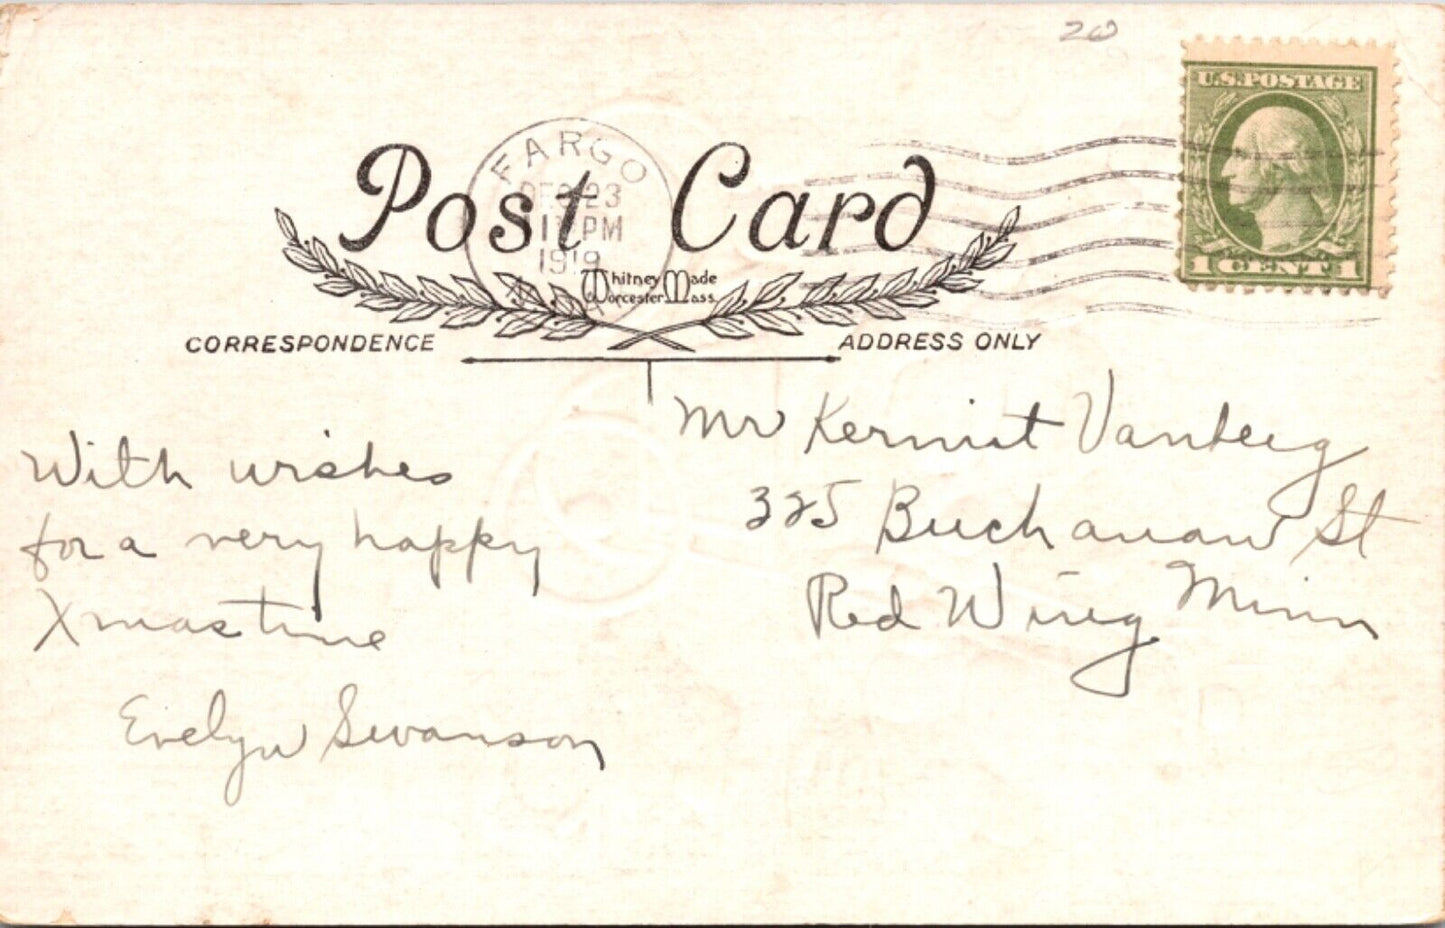 20
U.S. POSTAGE
1 CENT 1
FARGO
DEC 23
PM
1919
Post Card
Whitney Made
Worcester Mass.
CORRESPONDENCE
ADDRESS ONLY
With wishes
for a very happy
Xmas time
Evelyn Swanson
Mr Kermit Vanberg
325 Buchanan St
Red Wing Minn